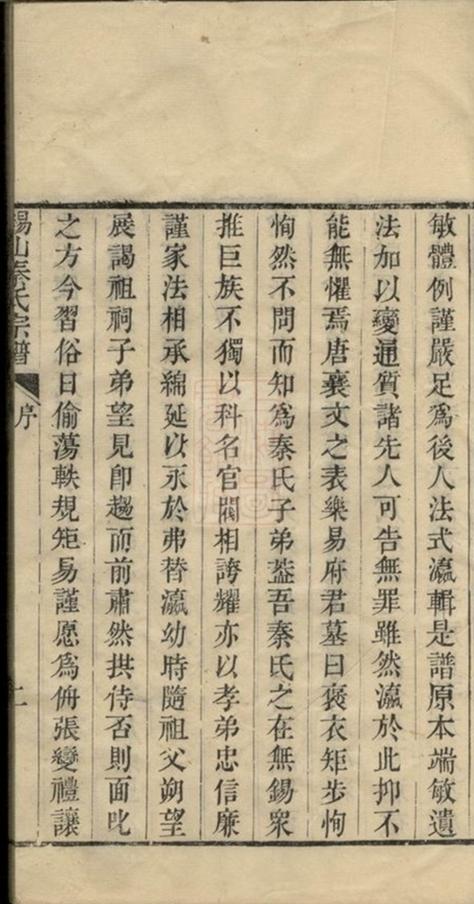 敏體例謹嚴足爲後人法式瀛輯是譜原本端敏遺
法加以變通質諸先人可告無罪雖然瀛於此抑不
能無懼焉唐襄文之表樂易府君墓曰褒衣矩步恂
恂然不問而知爲秦氏子弟葢吾秦氏之在無錫衆
推巨族不獨以科名官閥相誇耀亦以孝弟忠信廉
謹家法相承綿延以永於弗替瀛幼時隨祖父朔望
展謁祖祠子弟望見卽趨而前肅然拱侍否則面叱
之方今習俗日偷蕩軼規矩易謹愿爲侜張變禮讓
錫山秦氏宗譜 序 二